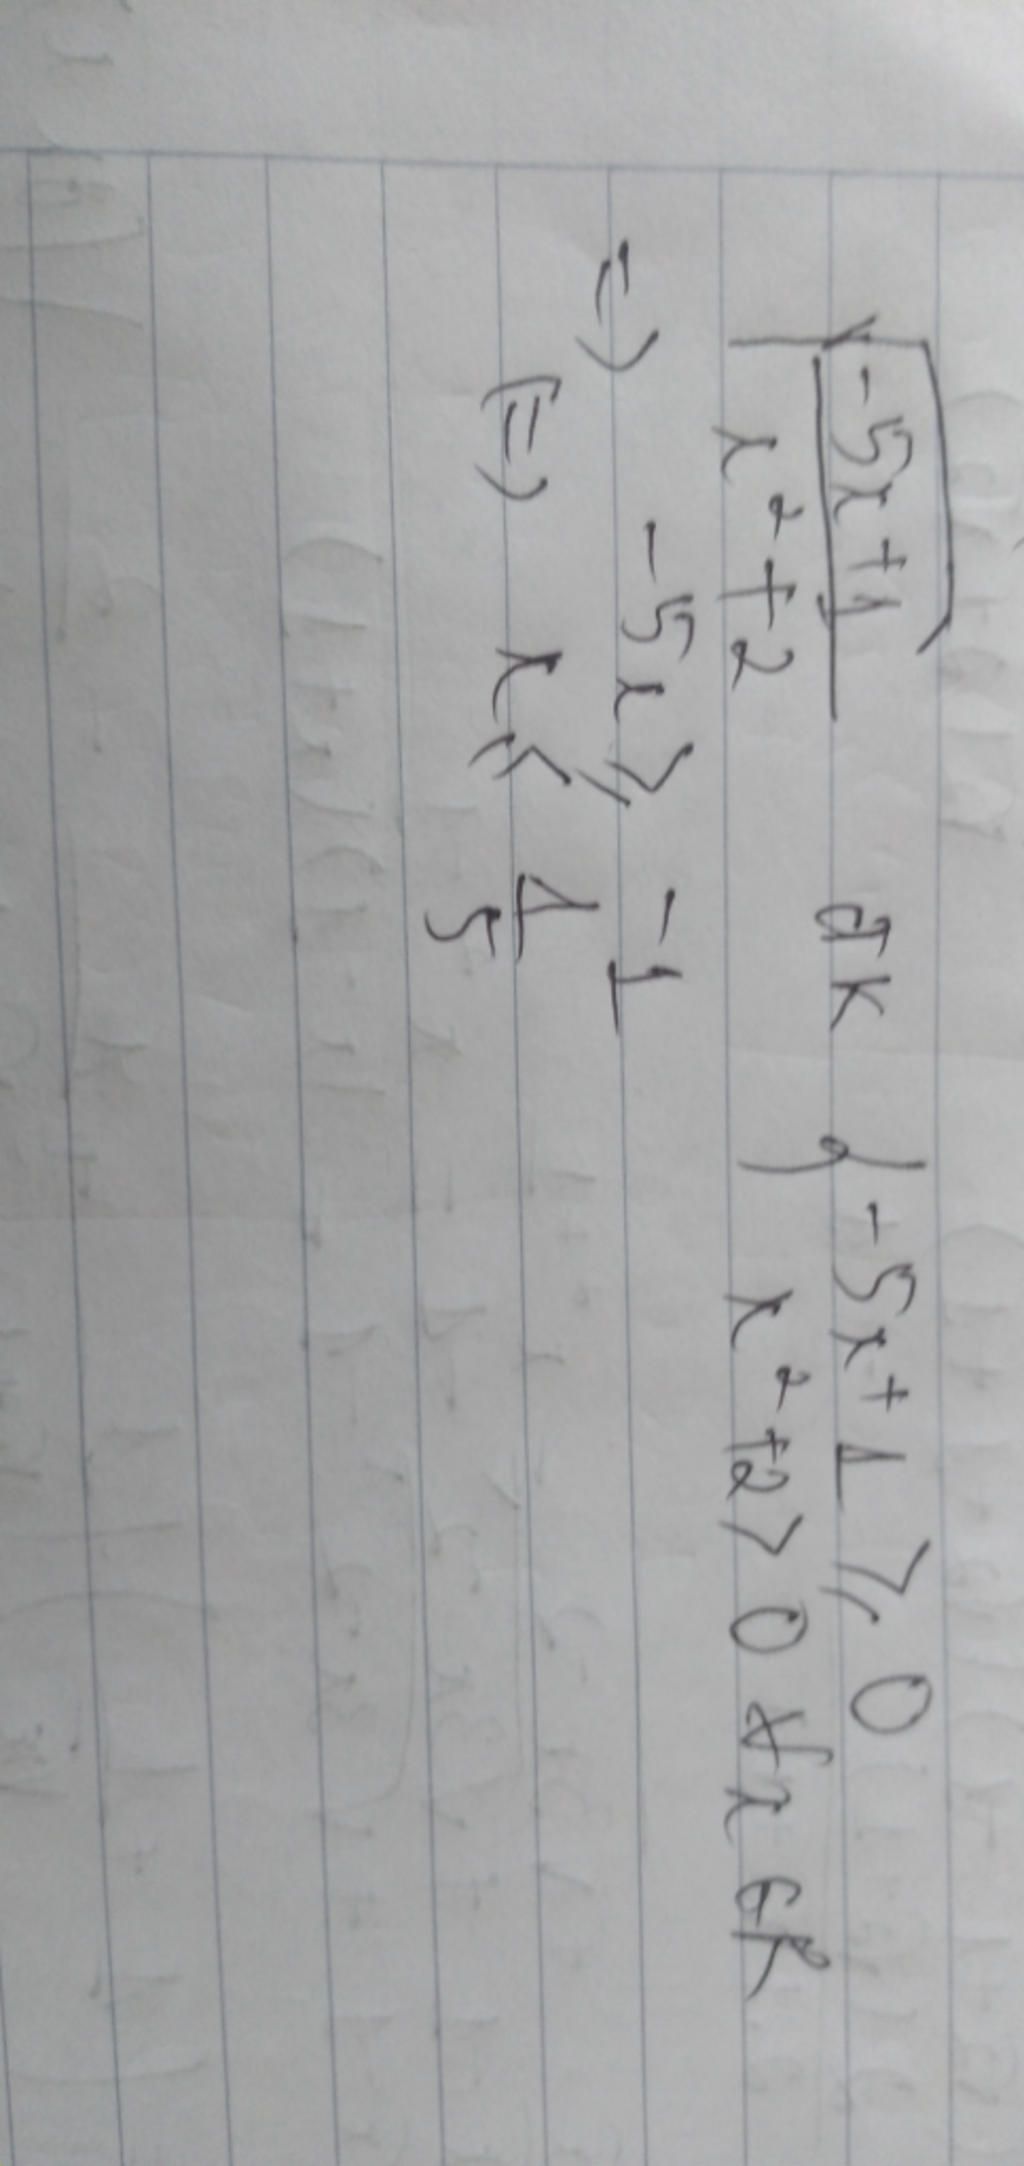 √((-5x+1)/(x²+2)) đk { -5x+1 ⩾ 0
x²+2 > 0 ∀x ∈ R
=> -5x ⩾ -1
<=> x ⩽ 1/5